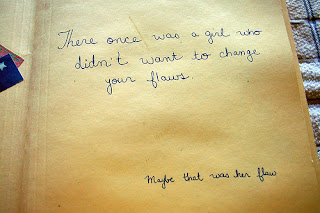 There once was a girl who
didn't want to change
your flaws.
Maybe that was her flaw